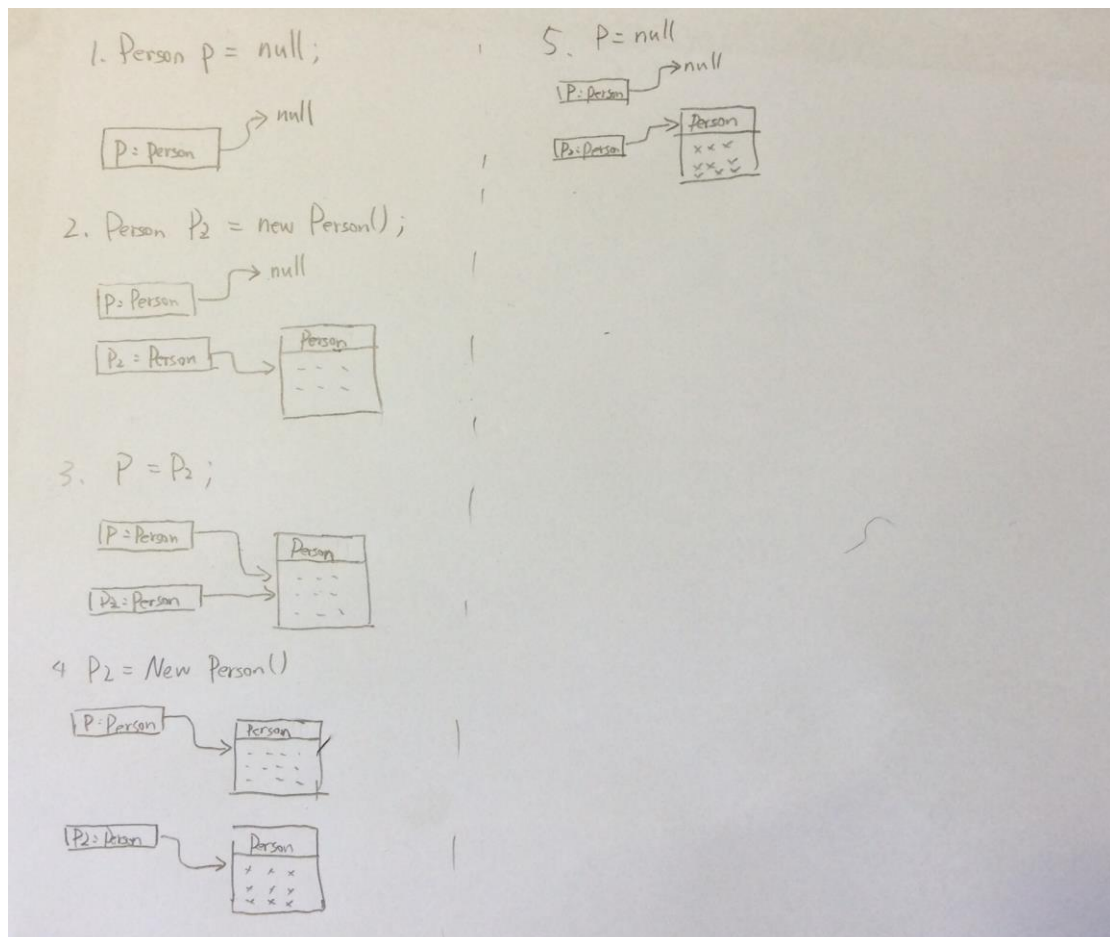 1. Person p = null;
null
P: Person
2. Person P2 = new Person();
null
P: Person
P2: Person
Person
3. P = P2;
P: Person
P2: Person
Person
4 P2 = New Person()
P: Person
Person
P2: Person
Person
5. P = null
null
P: Person
P2: Person
Person